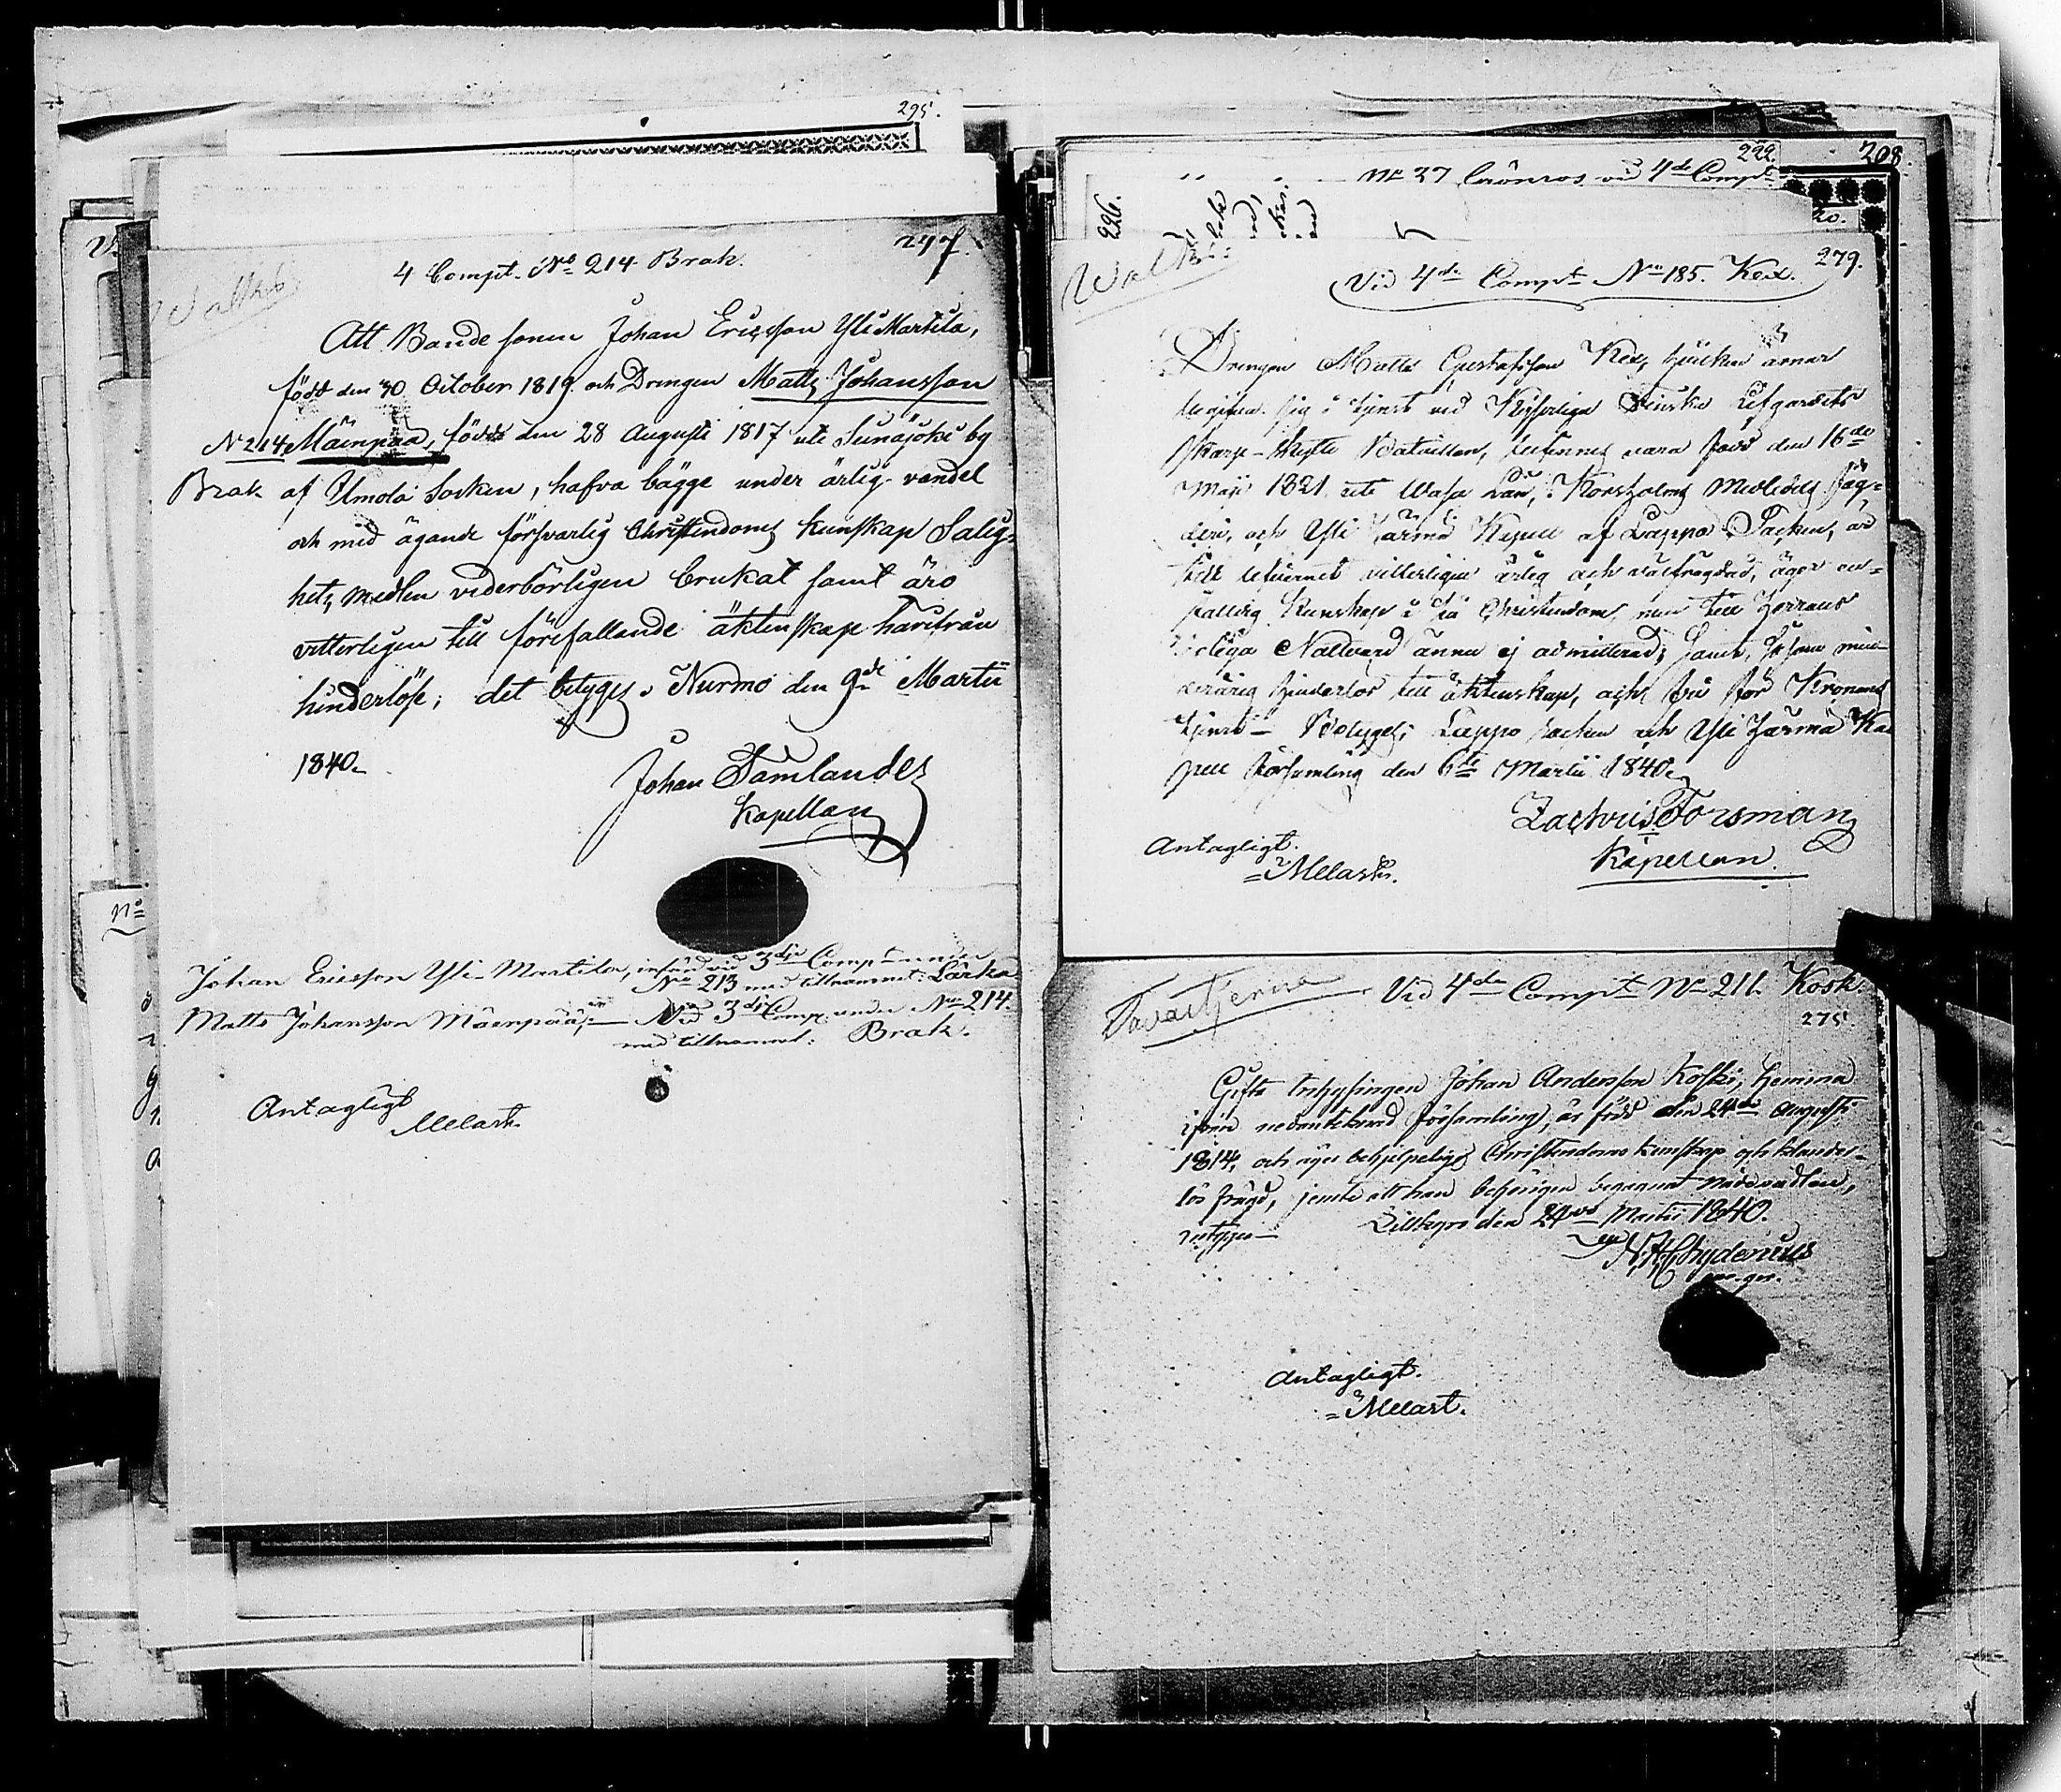 295.
247.
4 Compt. No 214 Brak.
Att Bondesonen Johan Ericsson YliMartila,
född den 30 October 1819 och Drengen Matts Johansson
No 214 Mäenpää, född den 28 Augusti 1817 uti Seinäjoki by
Brak af Ilmola Socken, hafva bägge under ärlig vandel
och med ägande försvarlig Christendoms kunskap Salig-
hets medlen vederbörligen brukat samt äro
vitterligen till förefallande äktenskap härifrån
hinderlöse; det betygas. Nurmo den 9de Martii
1840.
Johan Tamlander
Kapellan
Johan Ericsson Yli-Martila, införd vid 3dje Compt under
No 213 med tillnamnet: Lärka
Matts Johansson Mäenpää, Vid 3dje Comp. under No 214.
med tillnamnet: Brak.
Antagligt
Melart.
208.
222.
No 27 Grönros vid 4de Compt
226.
20.
279.
Vid 4de Compt No 185. Kex.
Drengen Matts Gustafsson Kex, hvilken ämnar
begifva sig i tjenst vid Kejserliga Finska Lifgardets
Skarp-Skytte Bataillon, befinnes vara född den 16de
Maji 1821 uti Wasa Län, Korsholms Medledels Fög-
deri, och Yli Härmä Kapell af Lappo Socken, är
till lefvernet vitterligen ärlig och välfrägdad, äger
Kunskap i sin Christendom, men till Herrans
Heliga Nattvard ännu ej admitterad; samt, såsom min-
derårig hinderlös till äktenskap, och fri för Kronans
tjenst - Betygas; Lappo Socken och Yli Härmä Ka
pell Församling den 6te Martii 1840.
Zachris Forsman
Kapellan.
Antagligt.
Melart.
Vid 4de Compt No 211. Kosk.
275.
Gifte Inhysingen Johan Andersson Koski, hemma
ifrån nedantecknad församling, är född den 24de Augusti
1814, och äger behjelpelig Christendoms kunskap och klander-
lös frägd, jemte att han behörigen begagnat nådemedlen,
intygas Lillkyro den 24de Martii 1840.
Chydenius
Antagligt.
Melart.